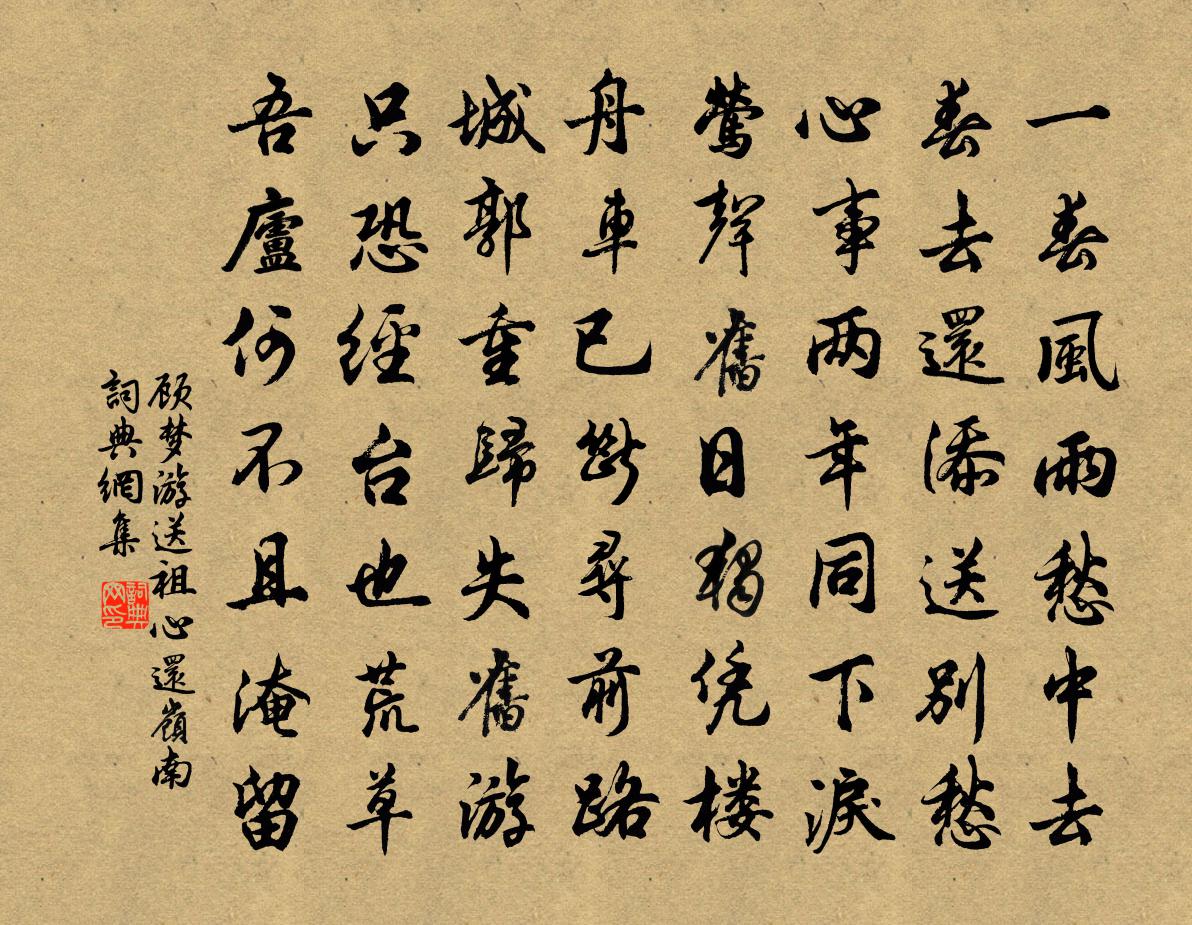 一春風雨愁中去
春去還添送別愁
心事两年同下淚
鶯聲舊日獨凭楼
舟車已断尋前路
城郭重歸失舊游
只恐經台也荒草
吾廬何不且淹留
顾梦游送祖心還嶺南
詞典網集
詞典
网印